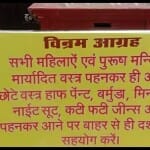 विनम्र आग्रह
सभी महिलाऐं एवं पुरूष
मर्यादित वस्त्र पहनकर ही
छोटे वस्त्र हाफ पेंन्ट, बर्मुडा,
नाईट सूट, कटी फटी जीन्स
पहनकर आने पर बाहर से ही
सहयोग करें।